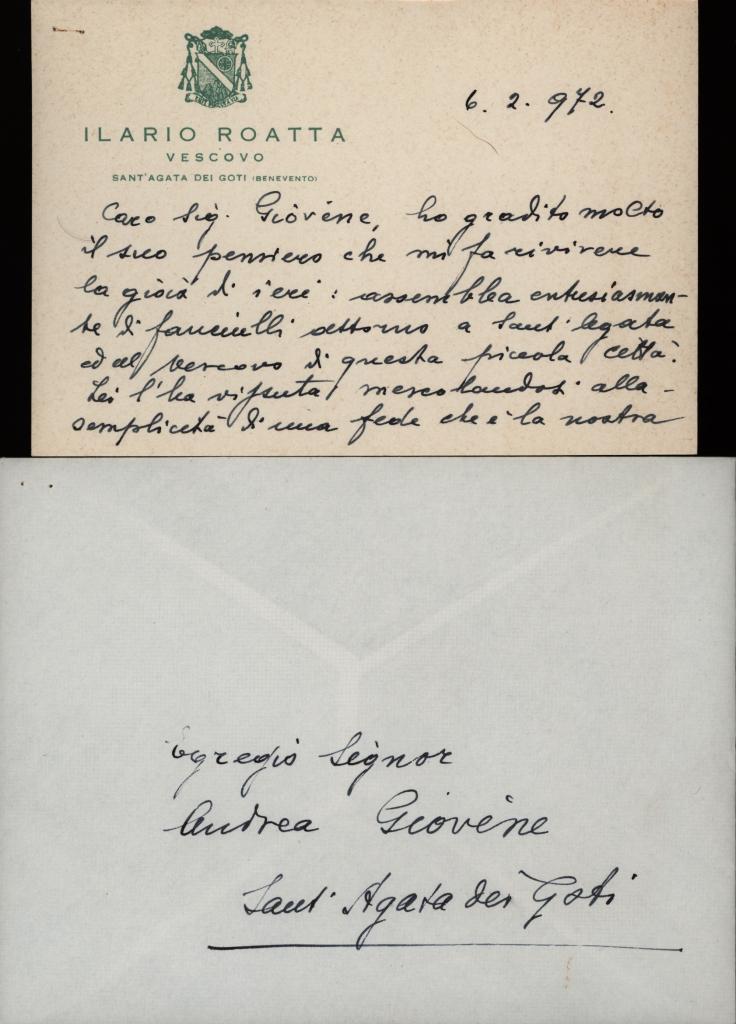 6. 2. 972.
ILARIO ROATTA
VESCOVO
SANT'AGATA DEI GOTI (BENEVENTO)
Caro Sig. Giovéne, ho gradito molto
il suo pensiero che mi fa rivivere
la gioia di ieri: assemblea entusiasman-
te di fanciulli attorno a Sant'Agata
ed al Vescovo di questa piccola città.
Lei l'ha vissuta mescolandosi alla
semplicità di una fede che è la nostra
Egregio Signor
Andrea Giovéne
Sant'Agata dei Goti